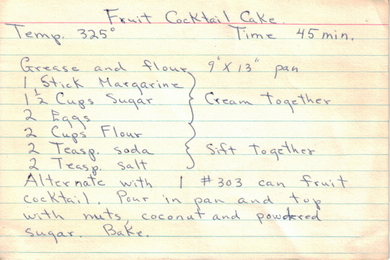 Fruit Cocktail Cake.
Temp. 325° Time 45 min.
Grease and flour 9" X 13" pan
1 Stick Margarine
1 1/2 Cups Sugar Cream Together
2 Eggs
2 Cups Flour
2 Teasp. soda Sift Together
2 Teasp. salt
Alternate with 1 #303 can fruit
cocktail. Pour in pan and top
with nuts, coconut and powdered
sugar. Bake.